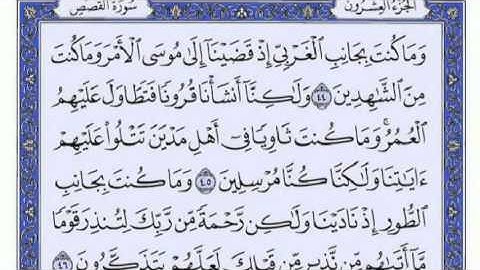 الجزء العشرون
سورة القصص
وَمَا كُنتَ بِجَانِبِ ٱلْغَرْبِىِّ إِذْ قَضَيْنَآ إِلَىٰ مُوسَى ٱلْأَمْرَ وَمَا كُنتَ
مِنَ ٱلشَّٰهِدِينَ ٤٤ وَلَٰكِنَّآ أَنشَأْنَا قُرُونًا فَتَطَاوَلَ عَلَيْهِمُ
ٱلْعُمُرُ ۚ وَمَا كُنتَ ثَاوِيًا فِىٓ أَهْلِ مَدْيَنَ تَتْلُوا۟ عَلَيْهِمْ
ءَايَٰتِنَا وَلَٰكِنَّا كُنَّا مُرْسِلِينَ ٤٥ وَمَا كُنتَ بِجَانِبِ
ٱلطُّورِ إِذْ نَادَيْنَا وَلَٰكِن رَّحْمَةً مِّن رَّبِّكَ لِتُنذِرَ قَوْمًا
مَّآ أَتَىٰهُم مِّن نَّذِيرٍ مِّن قَبْلِكَ لَعَلَّهُمْ يَتَذَكَّرُونَ ٤٦